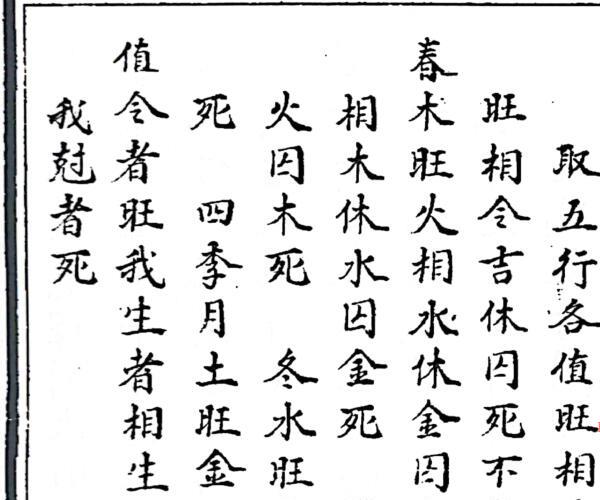 取五行各值旺相
旺相令吉休囚死不
春木旺火相水休金囚
相木休水囚金死
火囚木死　冬水旺
死　四季月土旺金
值令者旺我生者相生
我尅者死